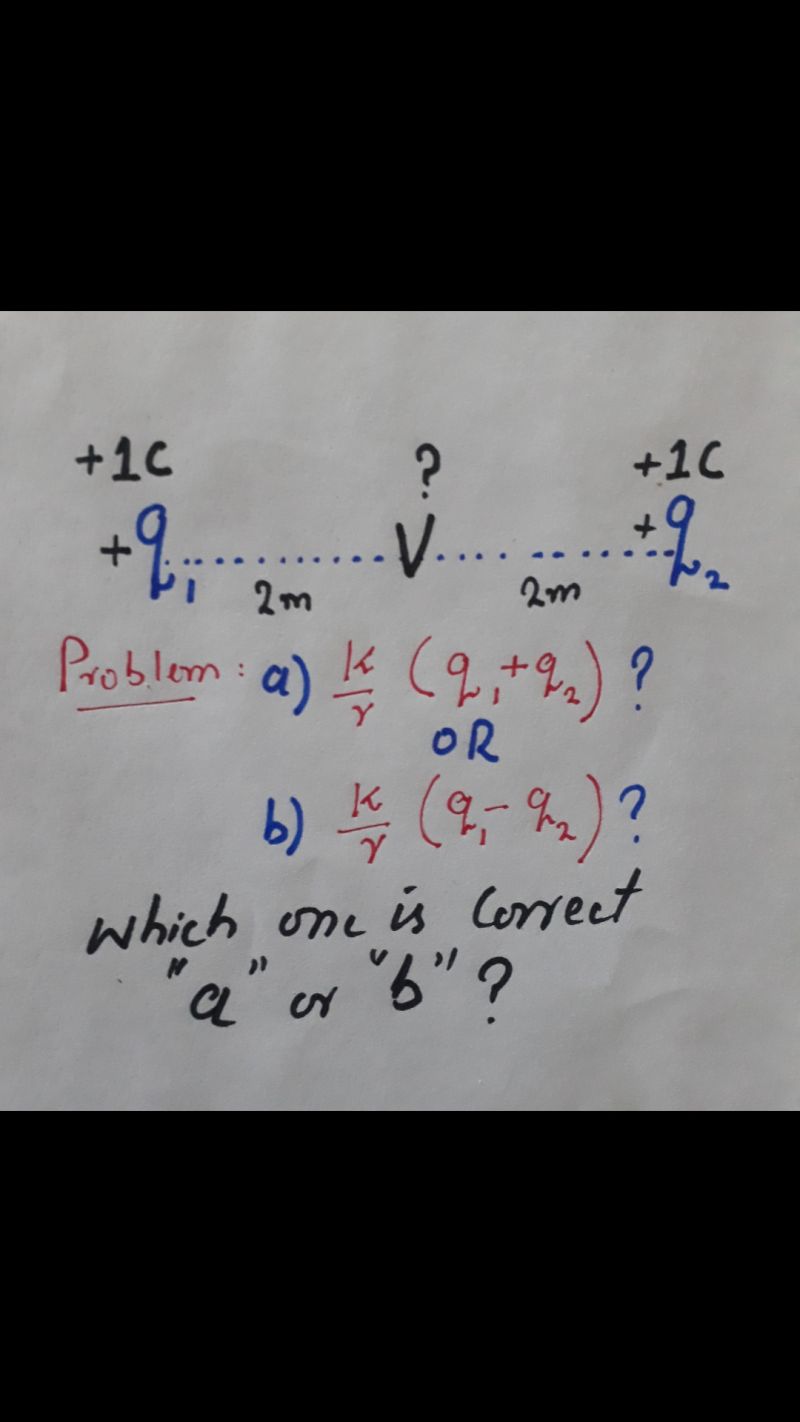 +1C ? +1C
+q₁ ........ V ........ +q₂
2m 2m
Problem: a) K/r (q₁+q₂) ?
OR
b) K/r (q₁-q₂) ?
which one is correct
"a" or "b" ?